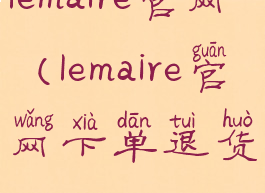 lemaire官网
(lemaire官
guān
wǎng xià dān tuì huò
网下单退货